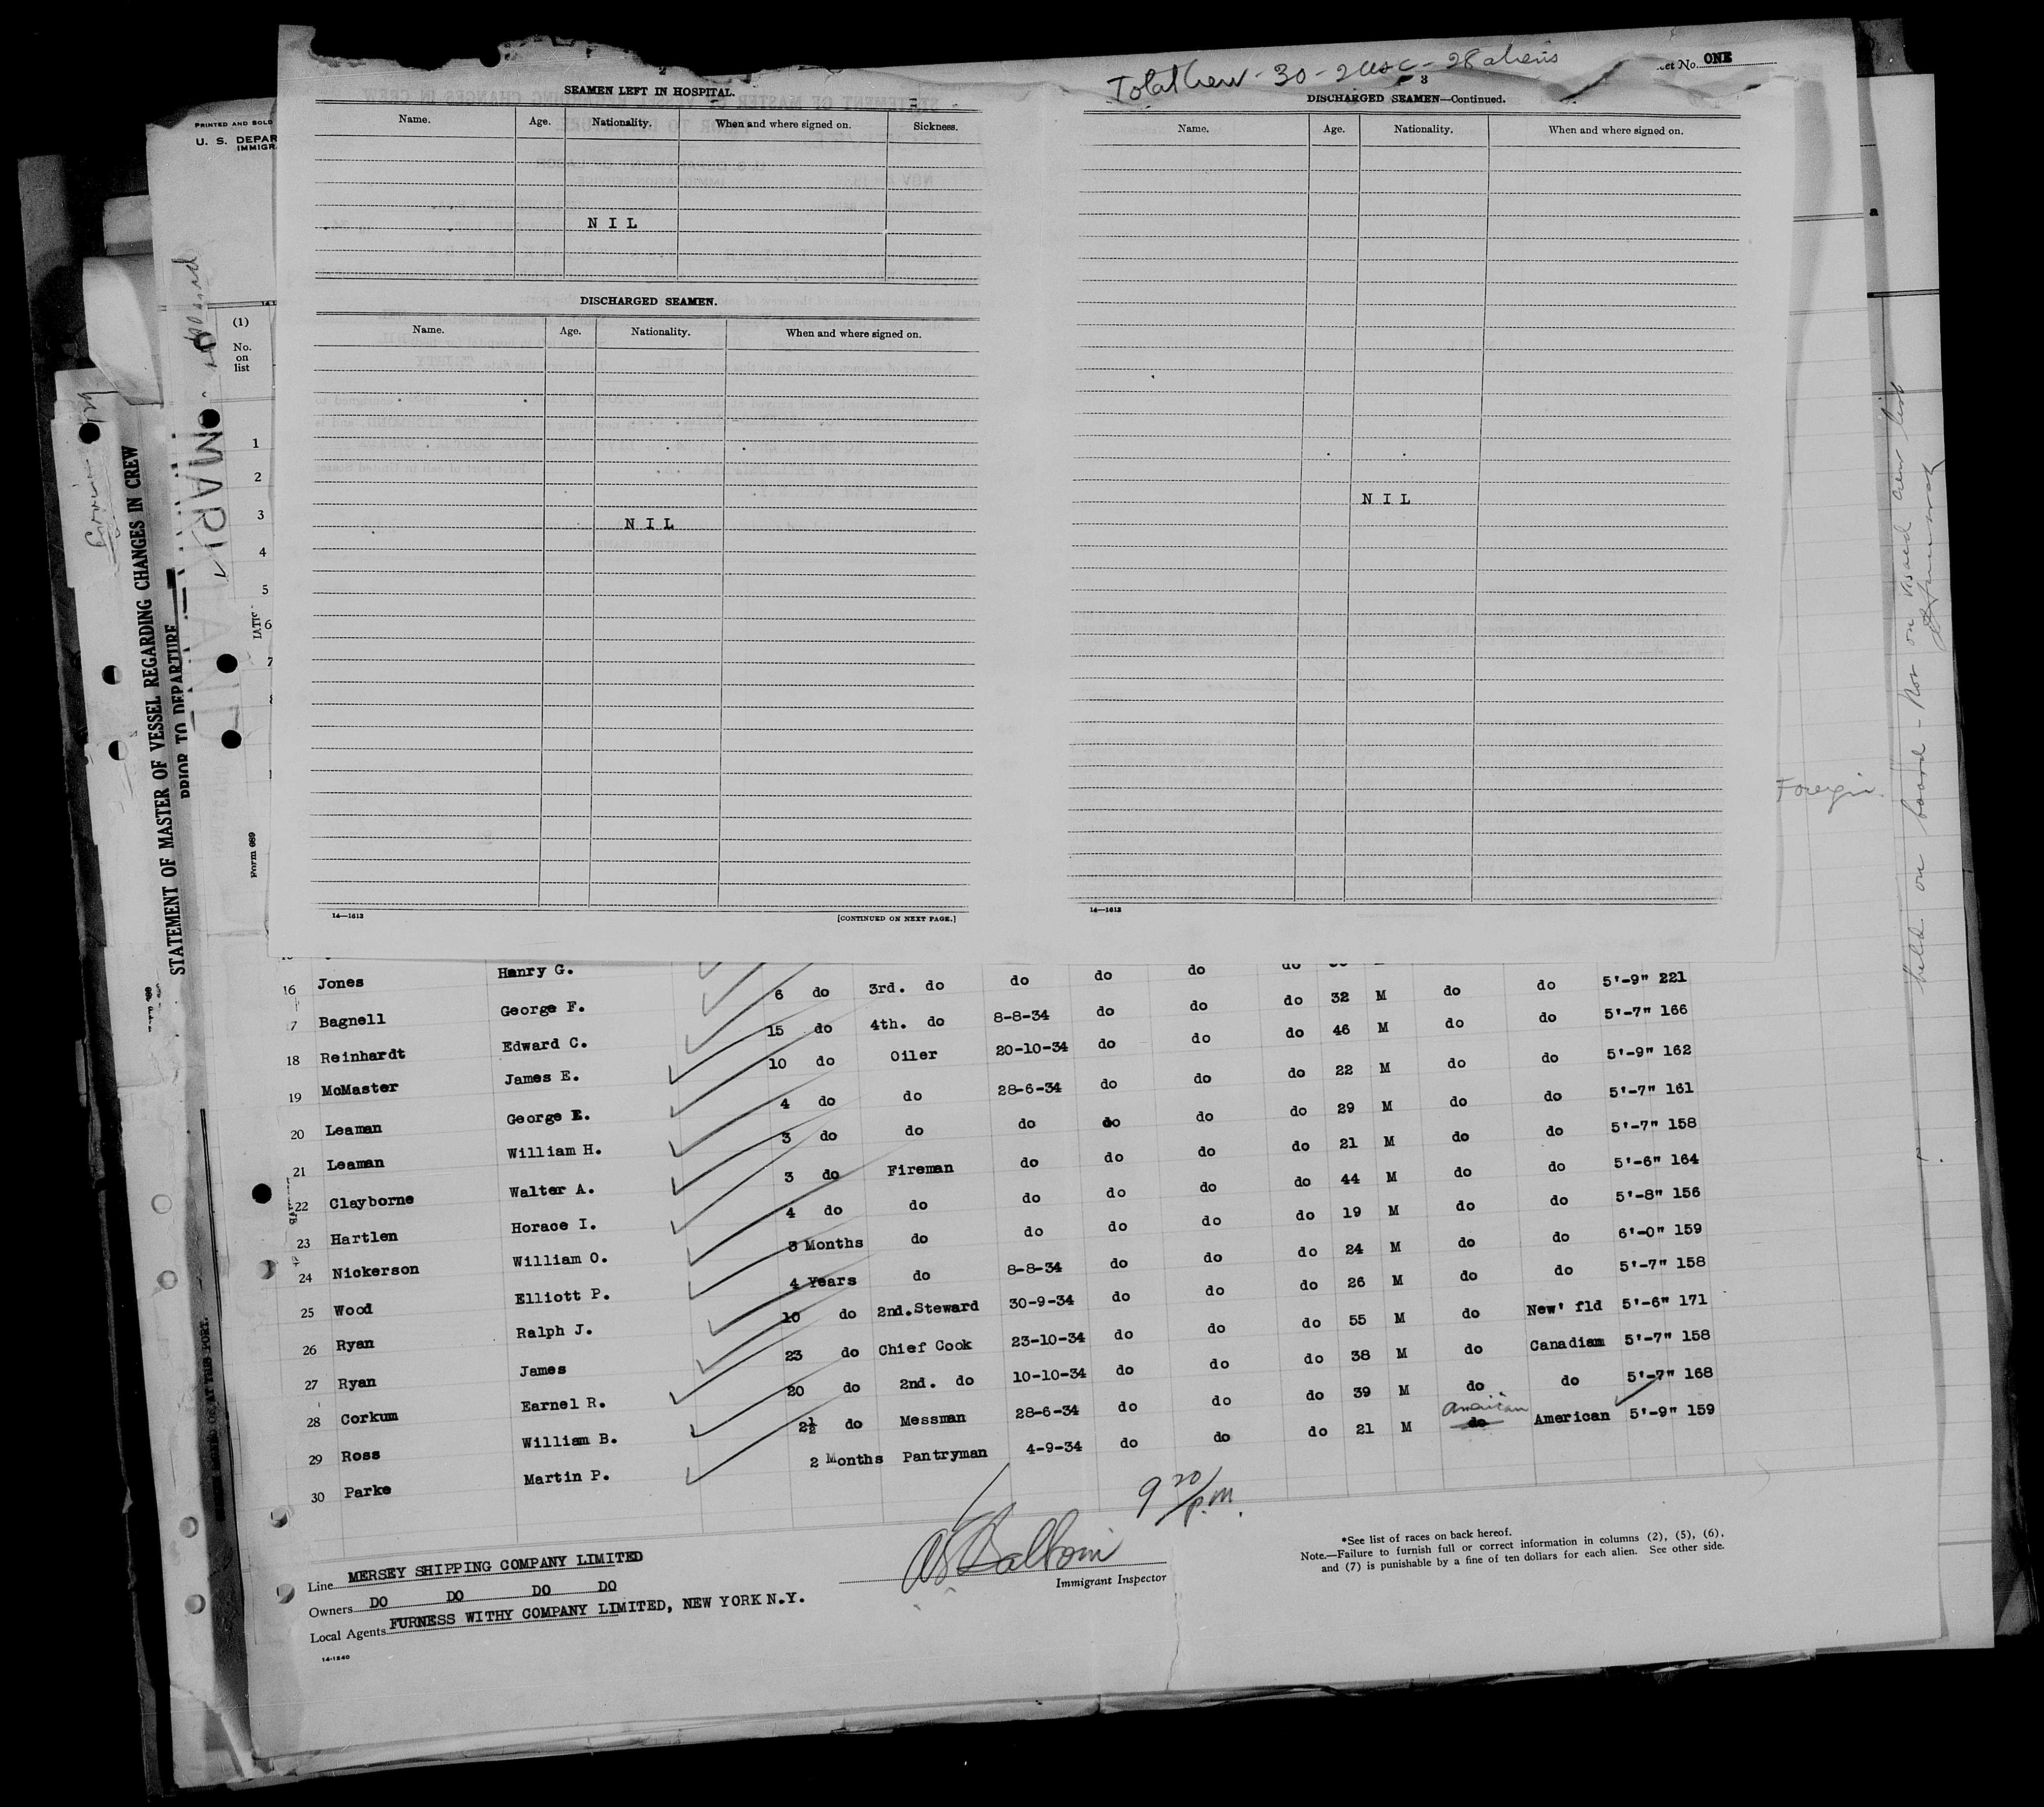 Total Crew - 30 - 2 USC - 28 aliens
Sheet No. ONE
PRINTED AND SOLD
U. S. DEPAR
IMMIGRA
2
SEAMEN LEFT IN HOSPITAL.
Name. Age. Nationality. When and where signed on. Sickness.
N I L
DISCHARGED SEAMEN.
Name. Age. Nationality. When and where signed on.
N I L
14—1613 [CONTINUED ON NEXT PAGE.]
3
DISCHARGED SEAMEN—Continued.
Name. Age. Nationality. When and where signed on.
N I L
14—1613
STATEMENT OF MASTER OF VESSEL REGARDING CHANGES IN CREW
PRIOR TO DEPARTURE
Form 689
(1)
No.
on
list
1
2
3
4
5
6
7
Foreign
held on board - Not on visaed crew list
16 Jones Henry G.
7 Bagnell George F. 6 do 3rd. do do do do do
18 Reinhardt Edward C. 15 do 4th. do 8-8-34 do do do 32 M do do 5'-9" 221
19 McMaster James E. 10 do Oiler 20-10-34 do do do 46 M do do 5'-7" 166
20 Leaman George E. 4 do do 28-6-34 do do do 22 M do do 5'-9" 162
21 Leaman William H. 3 do do do do do do 29 M do do 5'-7" 161
22 Clayborne Walter A. 3 do Fireman do do do do 21 M do do 5'-7" 158
23 Hartlen Horace I. 4 do do do do do do 44 M do do 5'-6" 164
24 Nickerson William O. 3 Months do do do do do 19 M do do 5'-8" 156
25 Wood Elliott P. 4 Years do 8-8-34 do do do 24 M do do 6'-0" 159
26 Ryan Ralph J. 10 do 2nd.Steward 30-9-34 do do do 26 M do do 5'-7" 158
27 Ryan James 23 do Chief Cook 23-10-34 do do do 55 M do New' fld 5'-6" 171
28 Corkum Earnel R. 20 do 2nd. do 10-10-34 do do do 38 M do Canadian 5'-7" 158
29 Ross William B. 2½ do Messman 28-6-34 do do do 39 M do do 5'-7" 168
30 Parke Martin P. 2 Months Pantryman 4-9-34 do do do 21 M do American American 5'-9" 159
9 20/p.m.
Immigrant Inspector
Line MERSEY SHIPPING COMPANY LIMITED
Owners DO DO DO DO
Local Agents FURNESS WITHY COMPANY LIMITED, NEW YORK N.Y.
14-1240
*See list of races on back hereof.
Note.—Failure to furnish full or correct information in columns (2), (5), (6),
and (7) is punishable by a fine of ten dollars for each alien. See other side.